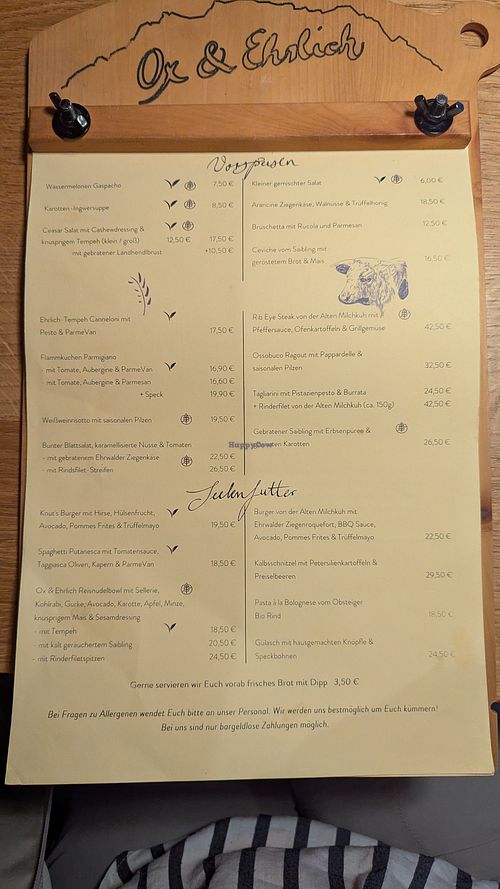 Ox & Ehrlich
Vorspeisen
Wassermelonen Gaspacho 7,50 €
Karotten-Ingwersuppe 8,50 €
Ceasar Salat mit Cashewdressing &
knusprigem Tempeh (klein / groß) 12,50 € 17,50 €
mit gebratener Landhendlbrust +10,50 €
Kleiner gemischter Salat 6,00 €
Arancine Ziegenkäse, Walnüsse & Trüffelhonig 18,50 €
Bruschetta mit Rucola und Parmesan 12,50 €
Ceviche vom Saibling mit
geröstetem Brot & Mais 16,50 €
Ehrlich-Tempeh Canneloni mit
Pesto & ParmeVan 17,50 €
Flammkuchen Parmigiano
- mit Tomate, Aubergine & ParmeVan 16,90 €
- mit Tomate, Aubergine & Parmesan 16,60 €
+ Speck 19,90 €
Weißweinrisotto mit saisonalen Pilzen 19,50 €
Bunter Blattsalat, karamellisierte Nüsse & Tomaten
- mit gebratenem Ehrwalder Ziegenkäse 22,50 €
- mit Rindsfilet-Streifen 26,50 €
Rib Eye Steak von der Alten Milchkuh mit
Pfeffersauce, Ofenkartoffeln & Grillgemüse 42,50 €
Ossobuco Ragout mit Pappardelle &
saisonalen Pilzen 32,50 €
Tagliarini mit Pistazienpesto & Burrata 24,50 €
+ Rinderfilet von der Alten Milchkuh (ca. 150g) 42,50 €
Gebratener Saibling mit Erbsenpüree &
Karotten 26,50 €
HappyCow
Seelenfutter
Knut's Burger mit Hirse, Hülsenfrucht,
Avocado, Pommes Frites & Trüffelmayo 19,50 €
Spaghetti Putanesca mit Tomatensauce,
Taggiasca Oliven, Kapern & ParmeVan 18,50 €
Ox & Ehrlich Reisnudelbowl mit Sellerie,
Kohlrabi, Gurke, Avocado, Karotte, Apfel, Minze,
knusprigem Mais & Sesamdressing
- mit Tempeh 18,50 €
- mit kalt geräuchertem Saibling 20,50 €
- mit Rinderfiletspitzen 24,50 €
Burger von der Alten Milchkuh mit
Ehrwalder Ziegenroquefort, BBQ Sauce,
Avocado, Pommes Frites & Trüffelmayo 22,50 €
Kalbsschnitzel mit Petersilienkartoffeln &
Preiselbeeren 29,50 €
Pasta à la Bolognese vom Obsteiger
Bio Rind 18,50 €
Gulasch mit hausgemachten Knöpfle &
Speckbohnen 24,50 €
Gerne servieren wir Euch vorab frisches Brot mit Dipp 3,50 €
Bei Fragen zu Allergenen wendet Euch bitte an unser Personal. Wir werden uns bestmöglich um Euch kümmern!
Bei uns sind nur bargeldlose Zahlungen möglich.